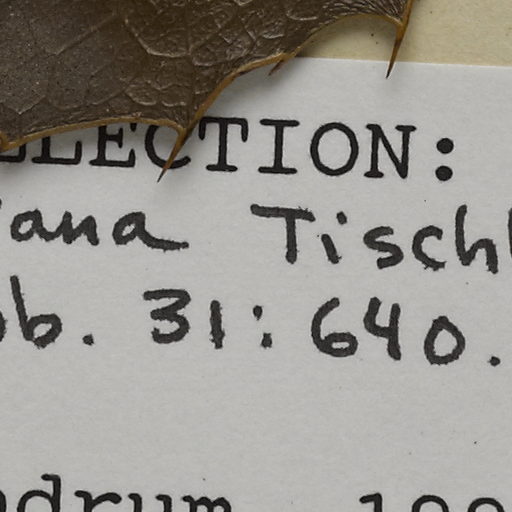 ELECTION:
ana Tisch
b. 31: 640.
drum 199